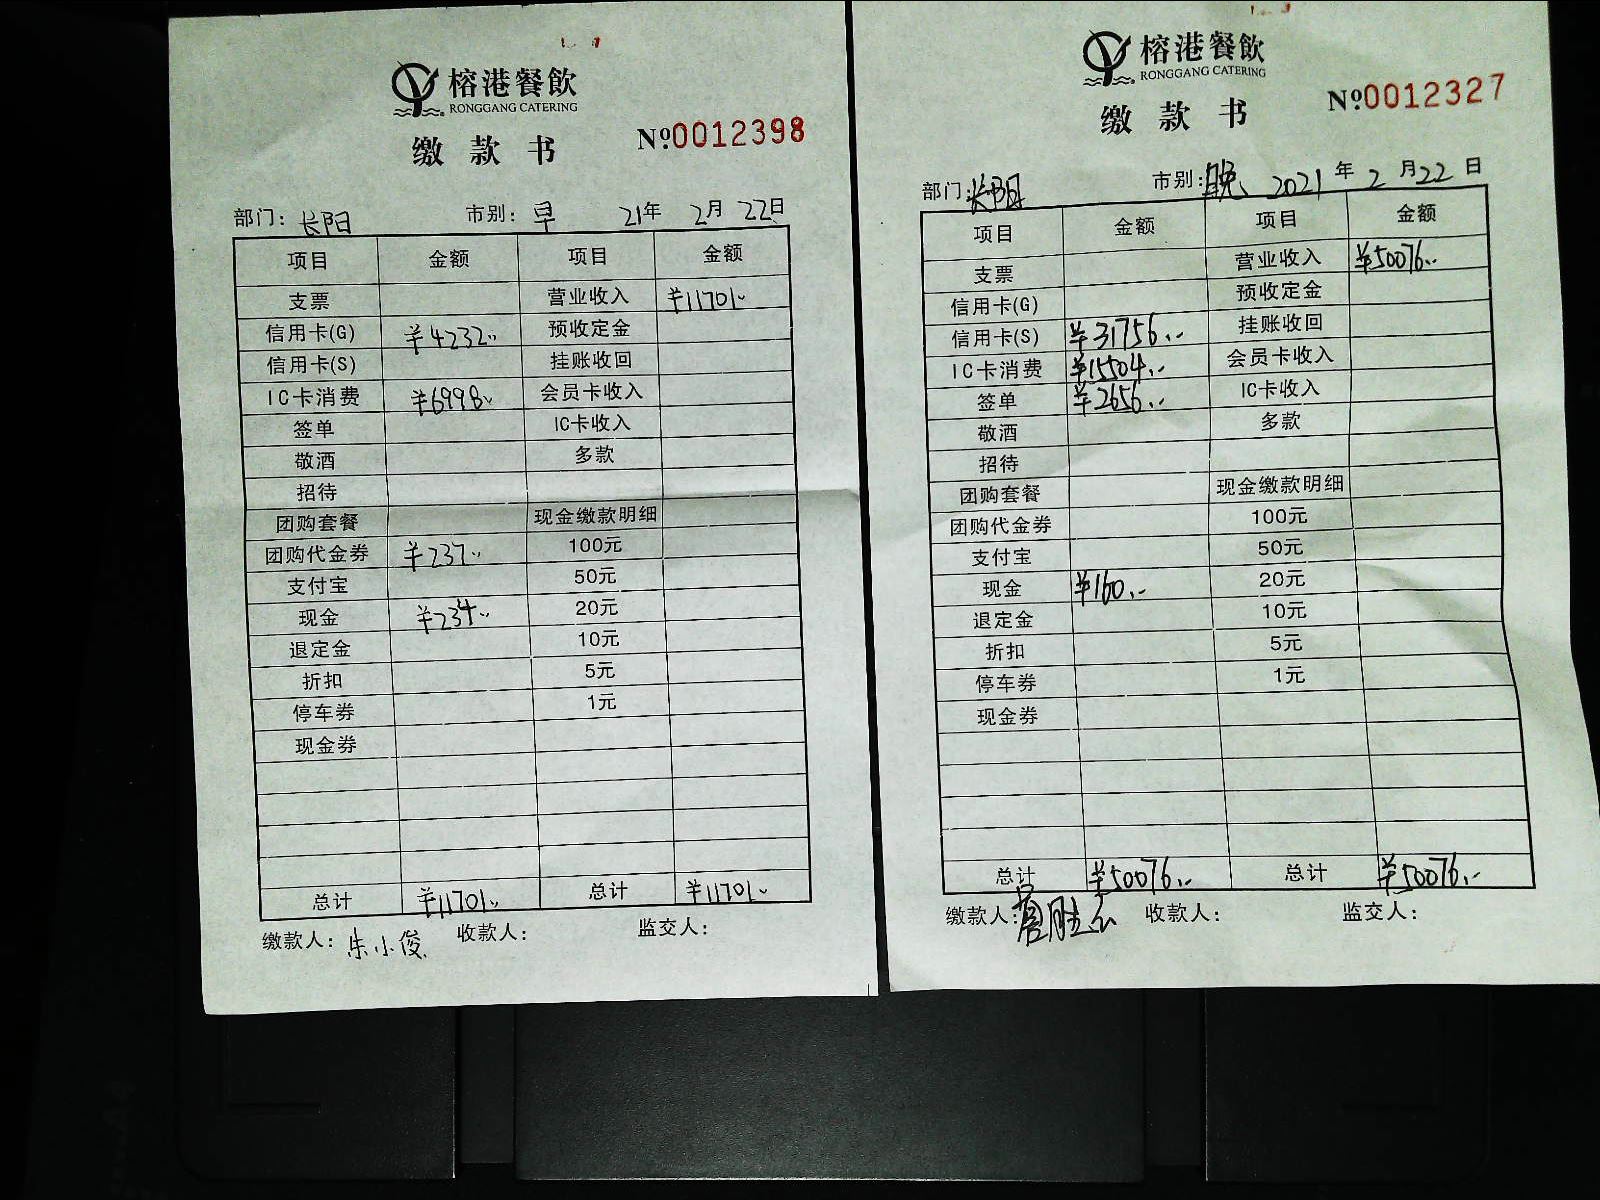 榕港餐飲
RONGGANG CATERING
缴款书
№0012398
部门：长阳 市别：早 21年2月22日
项目 金额 项目 金额
支票 营业收入 ¥11701
信用卡(G) ¥4232 预收定金
信用卡(S) 挂账收回
IC卡消费 ¥6998 会员卡收入
签单 IC卡收入
敬酒 多款
招待
团购套餐 现金缴款明细
团购代金券 ¥237 100元
支付宝 50元
现金 ¥234 20元
退定金 10元
折扣 5元
停车券 1元
现金券
总计 ¥11701 总计 ¥11701
缴款人：朱小俊 收款人： 监交人：
榕港餐飲
RONGGANG CATERING
缴款书
№0012327
部门：长阳 市别：晚 2021年2月22日
项目 金额 项目 金额
支票 营业收入 ¥50076
信用卡(G) 预收定金
信用卡(S) ¥31756 挂账收回
IC卡消费 ¥15504 会员卡收入
签单 ¥2656 IC卡收入
敬酒 多款
招待
团购套餐 现金缴款明细
团购代金券 100元
支付宝 50元
现金 ¥160 20元
退定金 10元
折扣 5元
停车券 1元
现金券
总计 ¥50076 总计 ¥50076
缴款人： 收款人： 监交人：